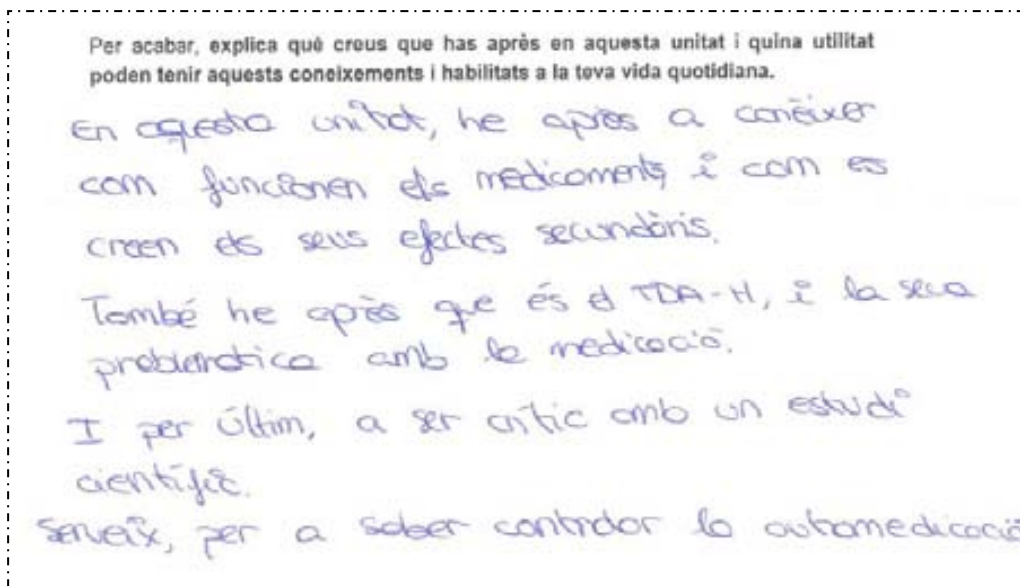 Per acabar, explica què creus que has après en aquesta unitat i quina utilitat
poden tenir aquests coneixements i habilitats a la teva vida quotidiana.
En aquesta unitat, he après a conèixer
com funcionen els medicaments i com es
creen els seus efectes secundàris.
També he après que és el TDA-H, i la seva
problemàtica amb la medicació.
I per últim, a ser crític amb un estudi
científic.
Serveix, per a saber controlar la automedicació